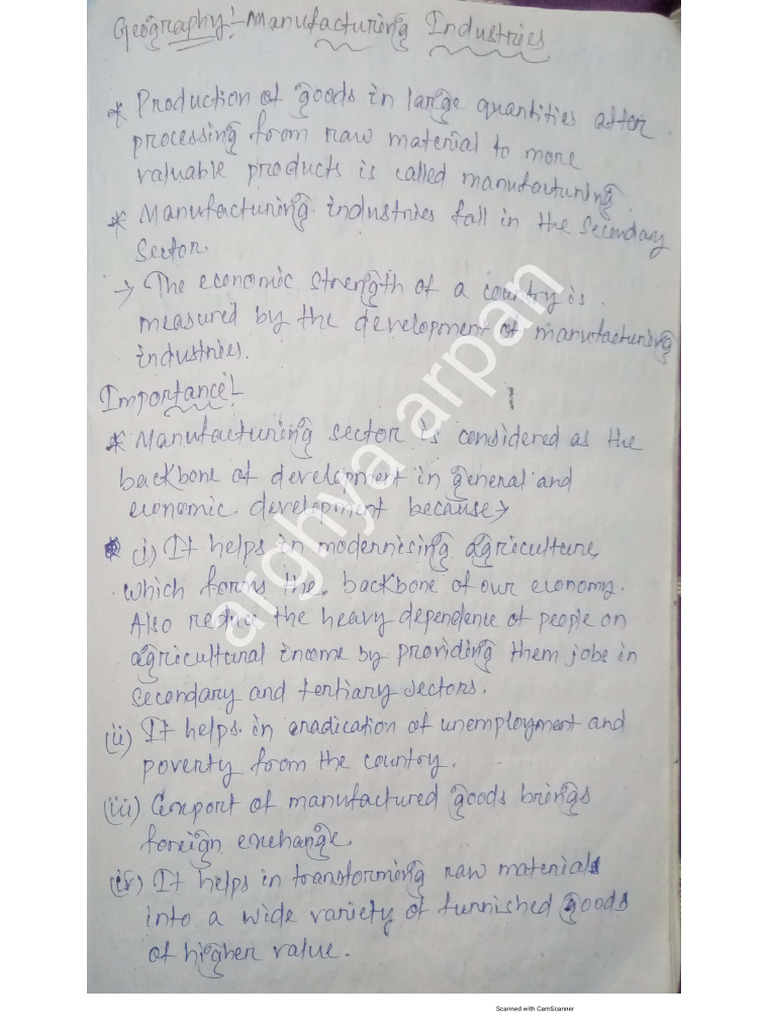 Geography:- Manufacturing Industries
* Production of goods in large quantities after
processing from raw material to more
valuable products is called manufacturing.
* Manufacturing industries fall in the secondary
sector.
→ The economic strength of a country is
measured by the development of manufacturing
industries.
Importance:-
* Manufacturing sector is considered as the
backbone of development in general and
economic development because →
* i) It helps in modernising agriculture,
which forms the backbone of our economy.
Also reduce the heavy dependence of people on
agricultural income by providing them jobs in
secondary and tertiary sectors.
(ii) It helps in eradication of unemployment and
poverty from the country.
(iii) Export of manufactured goods brings
foreign exchange.
(iv) It helps in transforming raw materials
into a wide variety of furnished goods
of higher value.
arghya arpan
Scanned with CamScanner